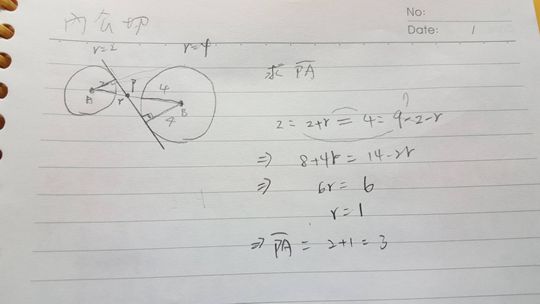 No:
Date: 1
內公切
r=2 r=4
求 PA
2 A r P 4 B 4
2 = 2+r = 4 = 9-2-r
⇒ 8+4r = 14-2r
⇒ 6r = 6
r = 1
⇒ PA = 2+1 = 3